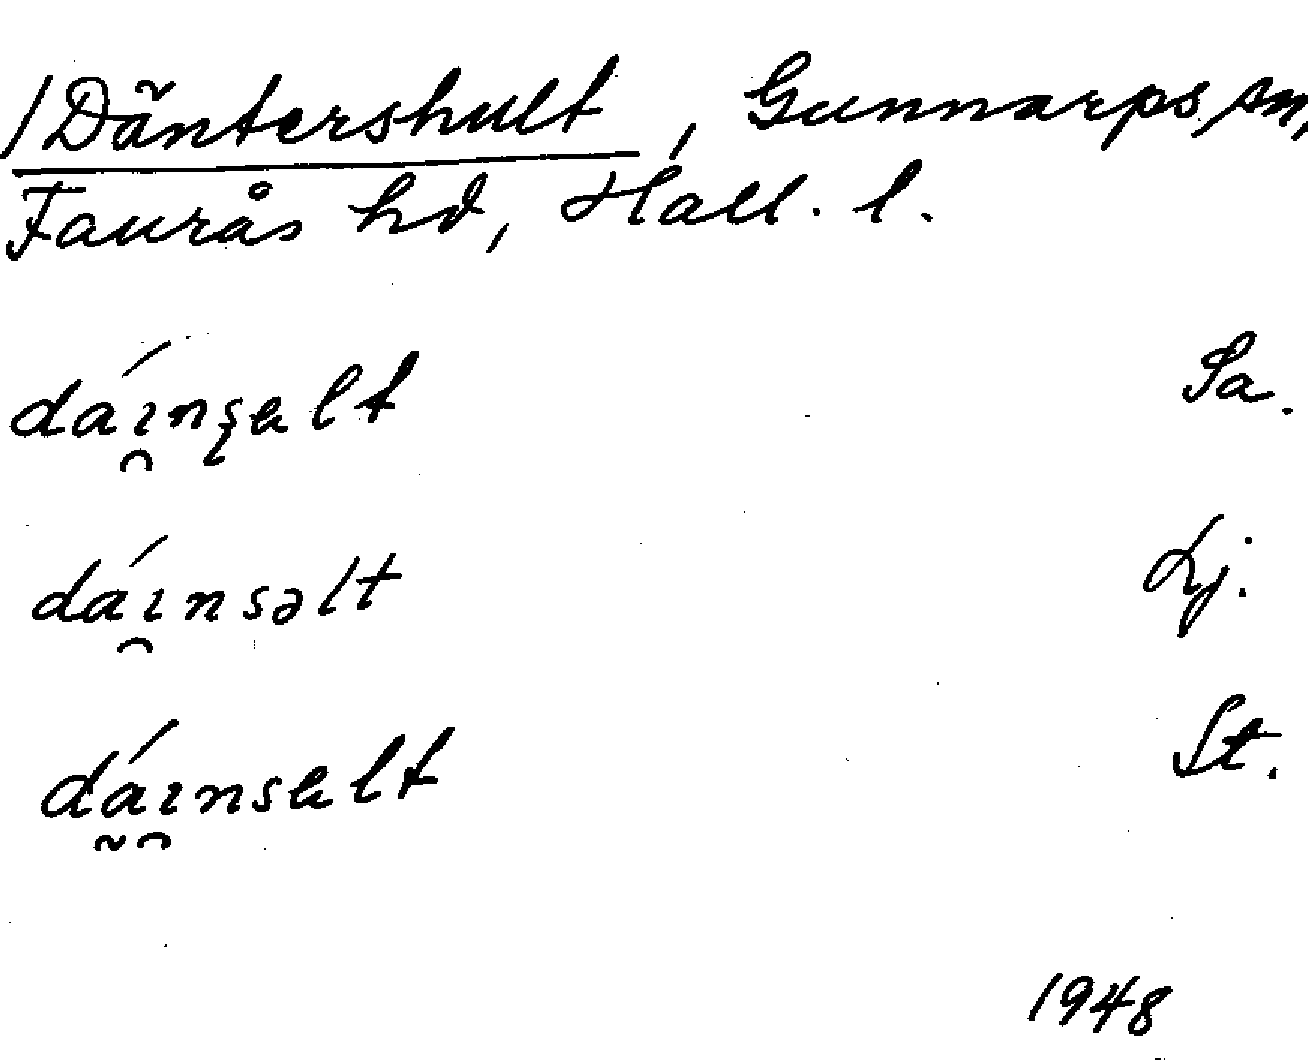 /Däntershult, Gunnarps sn,
Faurås hd, Hall. l.
dáı̯nʂɐlt Sa.
dáı̯nsəlt Lj.
dá̰ı̯nsɐlt St.
1948